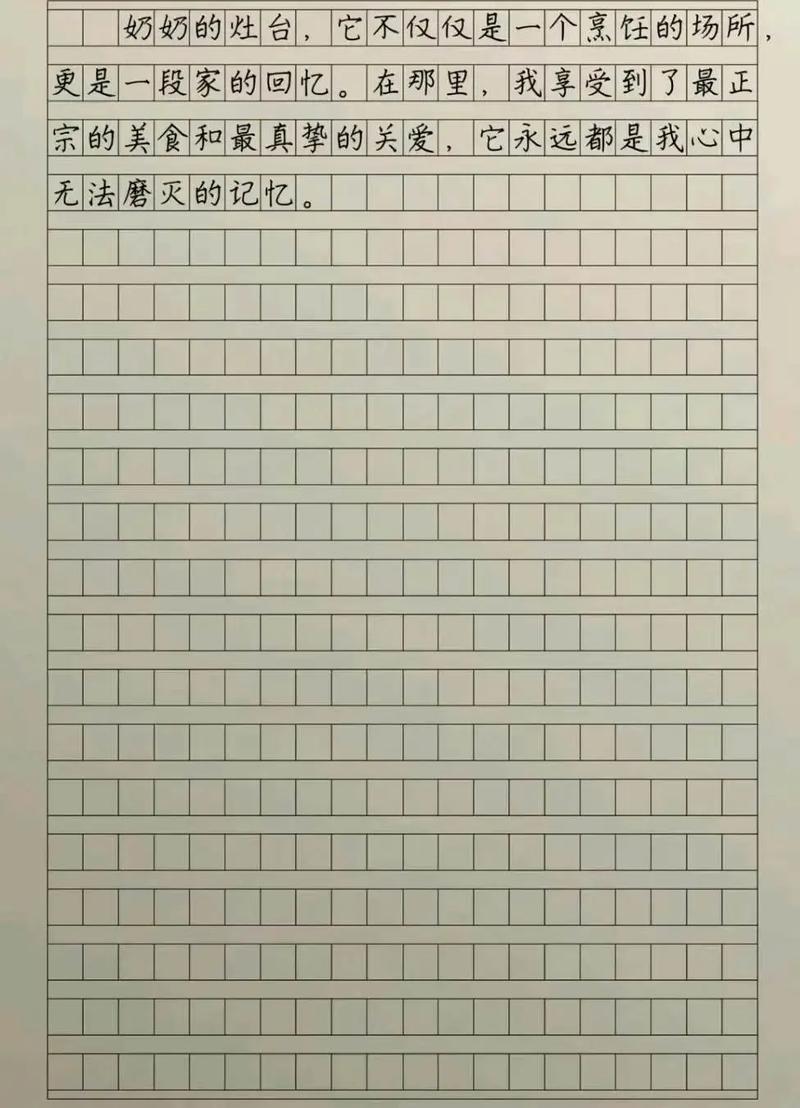 奶奶的灶台，它不仅仅是一个烹饪的场所，
更是一段家的回忆。在那里，我享受到了最正
宗的美食和最真挚的关爱，它永远都是我心中
无法磨灭的记忆。